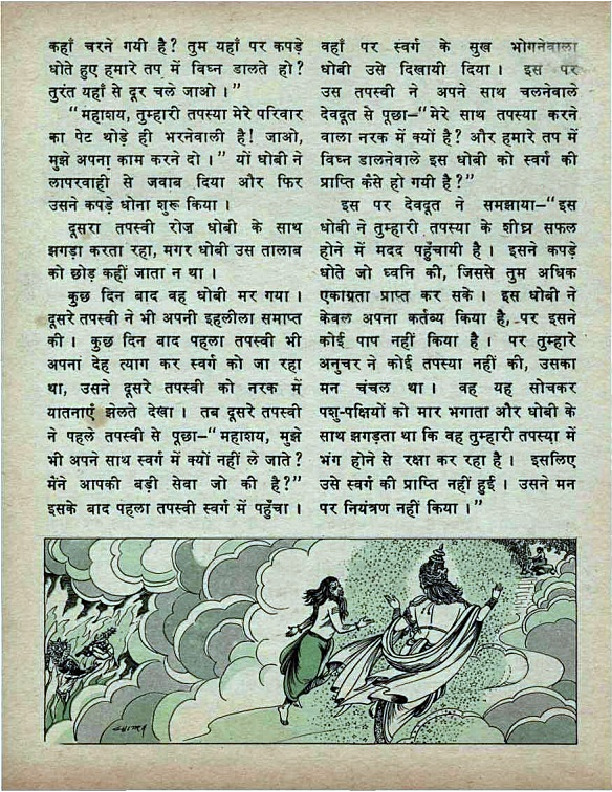 कहाँ चरने गयी है? तुम यहाँ पर कपड़े
धोते हुए हमारे तप में विघ्न डालते हो?
तुरंत यहाँ से दूर चले जाओ।"
"महाशय, तुम्हारी तपस्या मेरे परिवार
का पेट थोड़े ही भरनेवाली है! जाओ,
मुझे अपना काम करने दो।" यों धोबी ने
लापरवाही से जवाब दिया और फिर
उसने कपड़े धोना शुरू किया।
दूसरा तपस्वी रोज धोबी के साथ
झगड़ा करता रहा, मगर धोबी उस तालाब
को छोड़ कहीं जाता न था।
कुछ दिन बाद वह धोबी मर गया।
दूसरे तपस्वी ने भी अपनी इहलीला समाप्त
की। कुछ दिन बाद पहला तपस्वी भी
अपना देह त्याग कर स्वर्ग को जा रहा
था, उसने दूसरे तपस्वी को नरक में
यातनाएँ झेलते देखा। तब दूसरे तपस्वी
ने पहले तपस्वी से पूछा–"महाशय, मुझे
भी अपने साथ स्वर्ग में क्यों नहीं ले जाते?
मैंने आपकी बड़ी सेवा जो की है?"
इसके बाद पहला तपस्वी स्वर्ग में पहुँचा।
वहाँ पर स्वर्ग के सुख भोगनेवाला
धोबी उसे दिखायी दिया। इस पर
उस तपस्वी ने अपने साथ चलनेवाले
देवदूत से पूछा–"मेरे साथ तपस्या करने
वाला नरक में क्यों है? और हमारे तप में
विघ्न डालनेवाले इस धोबी को स्वर्ग की
प्राप्ति कैसे हो गयी है?"
इस पर देवदूत ने समझाया–"इस
धोबी ने तुम्हारी तपस्या के शीघ्र सफल
होने में मदद पहुँचायी है। इसने कपड़े
धोते जो ध्वनि की, जिससे तुम अधिक
एकाग्रता प्राप्त कर सके। इस धोबी ने
केवल अपना कर्तव्य किया है, पर इसने
कोई पाप नहीं किया है। पर तुम्हारे
अनुचर ने कोई तपस्या नहीं की, उसका
मन चंचल था। वह यह सोचकर
पशु-पक्षियों को मार भगाता और धोबी के
साथ झगड़ता था कि वह तुम्हारी तपस्या में
भंग होने से रक्षा कर रहा है। इसलिए
उसे स्वर्ग की प्राप्ति नहीं हुई। उसने मन
पर नियंत्रण नहीं किया।"